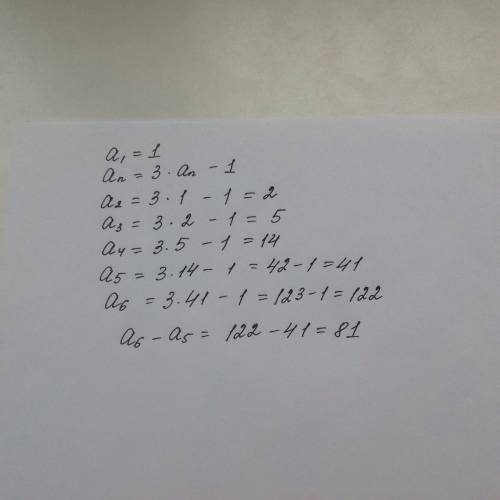 a₁ = 1
aₙ = 3 · aₙ - 1
a₂ = 3 · 1 - 1 = 2
a₃ = 3 · 2 - 1 = 5
a₄ = 3 · 5 - 1 = 14
a₅ = 3 · 14 - 1 = 42 - 1 = 41
a₆ = 3 · 41 - 1 = 123 - 1 = 122
a₆ - a₅ = 122 - 41 = 81